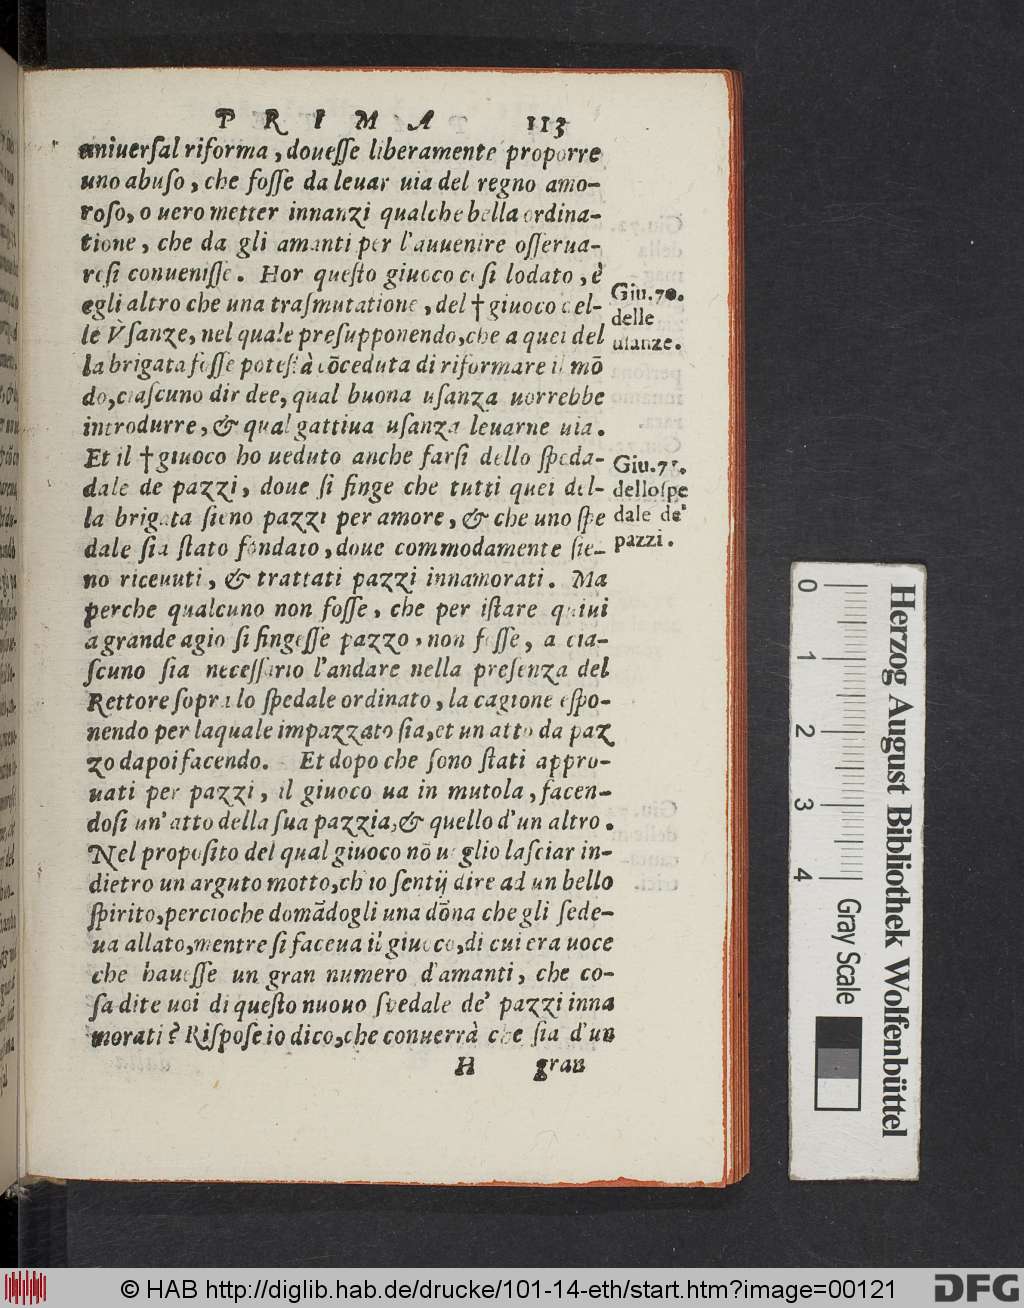 PRIMA 113
uniuerſal riforma, doueſſe liberamente proporre
uno abuſo, che foſſe da leuar uia del regno amo-
roſo, o uero metter innanzi qualche bella ordina-
tione, che da gli amanti per l'auuenire oſſerua-
reſi conueniſſe. Hor queſto giuoco coſi lodato, è
egli altro che una traſmutatione, del † giuoco del-
le Vſanze, nel quale preſupponendo, che a quei del
la brigata foſſe poteſtà cōceduta di riformare il mō
do, ciaſcuno dir dee, qual buona uſanza uorrebbe
introdurre, & qual gattiua uſanza leuarne uia.
Et il † giuoco ho ueduto anche farſi dello ſpeda-
dale de pazzi, doue ſi finge che tutti quei del-
la brigata ſieno pazzi per amore, & che uno ſpe
dale ſia ſtato fondato, doue commodamente ſie-
no riceuuti, & trattati pazzi innamorati. Ma
perche qualcuno non foſſe, che per iſtare quiui
a grande agio ſi fingeſſe pazzo, non foſſe, a cia-
ſcuno ſia neceſſario l'andare nella preſenza del
Rettore ſopra lo ſpedale ordinato, la cagione eſpo-
nendo per laquale impazzato ſia, et un atto da paz
zo dapoi facendo. Et dopo che ſono ſtati appro-
uati per pazzi, il giuoco ua in mutola, facen-
doſi un'atto della ſua pazzia, & quello d'un altro.
Nel propoſito del qual giuoco nō uoglio laſciar in-
dietro un arguto motto, ch'io ſentij dire ad un bello
ſpirito, percioche domādogli una dōna che gli ſede-
ua allato, mentre ſi faceua il giuoco, di cui era uoce
che haueſſe un gran numero d'amanti, che co-
ſa dite uoi di queſto nuouo ſpedale de' pazzi inna
morati? Riſpoſe io dico, che conuerrà che ſia d'un
H gran
Giu. 70.
delle
uſanze.
Giu. 71.
dello ſpe
dale de'
pazzi.
0 1 2 3 4
Gray Scale
Herzog August Bibliothek Wolfenbüttel
© HAB http://diglib.hab.de/drucke/101-14-eth/start.htm?image=00121
DFG